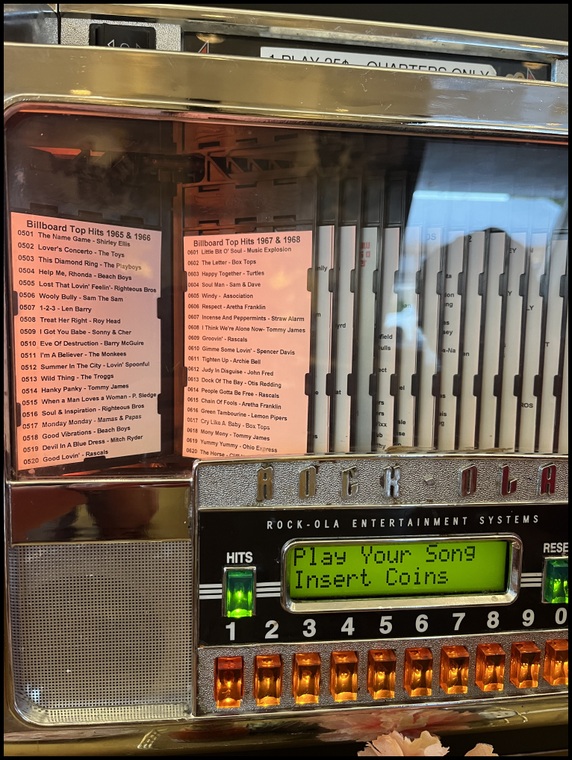 1 PLAY 25¢ - QUARTERS ONLY
Billboard Top Hits 1965 & 1966
0501 The Name Game - Shirley Ellis
0502 Lover's Concerto - The Toys
0503 This Diamond Ring - The Playboys
0504 Help Me, Rhonda - Beach Boys
0505 Lost That Lovin' Feelin'- Righteous Bros
0506 Wooly Bully - Sam The Sham
0507 1-2-3 - Len Barry
0508 Treat Her Right - Roy Head
0509 I Got You Babe - Sonny & Cher
0510 Eve Of Destruction - Barry McGuire
0511 I'm A Believer - The Monkees
0512 Summer In The City - Lovin' Spoonful
0513 Wild Thing - The Troggs
0514 Hanky Panky - Tommy James
0515 When a Man Loves a Woman - P. Sledge
0516 Soul & Inspiration - Righteous Bros
0517 Monday Monday - Mamas & Papas
0518 Good Vibrations - Beach Boys
0519 Devil In A Blue Dress - Mitch Ryder
0520 Good Lovin' - Rascals
Billboard Top Hits 1967 & 1968
0601 Little Bit O' Soul - Music Explosion
0602 The Letter - Box Tops
0603 Happy Together - Turtles
0604 Soul Man - Sam & Dave
0605 Windy - Association
0606 Respect - Aretha Franklin
0607 Incense And Peppermints - Straw Alarm
0608 I Think We're Alone Now- Tommy James
0609 Groovin' - Rascals
0610 Gimme Some Lovin' - Spencer Davis
0611 Tighten Up - Archie Bell
0612 Judy In Disguise - John Fred
0613 Dock Of The Bay - Otis Redding
0614 People Gotta Be Free - Rascals
0615 Chain Of Fools - Aretha Franklin
0616 Green Tambourine - Lemon Pipers
0617 Cry Like A Baby - Box Tops
0618 Mony Mony - Tommy James
0619 Yummy Yummy - Ohio Express
0620 The Horse -
ROCK-OLA
ROCK-OLA ENTERTAINMENT SYSTEMS
HITS
Play Your Song
Insert Coins
RESE
1 2 3 4 5 6 7 8 9 0